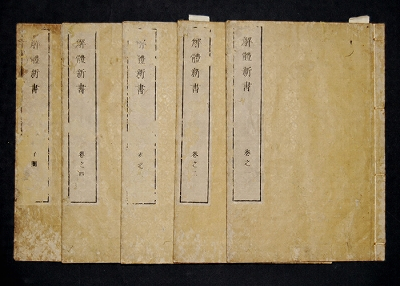 解體新書
卷之
解體新書
卷之
解體新書
之
解體新書
卷之四
解體新書
圖